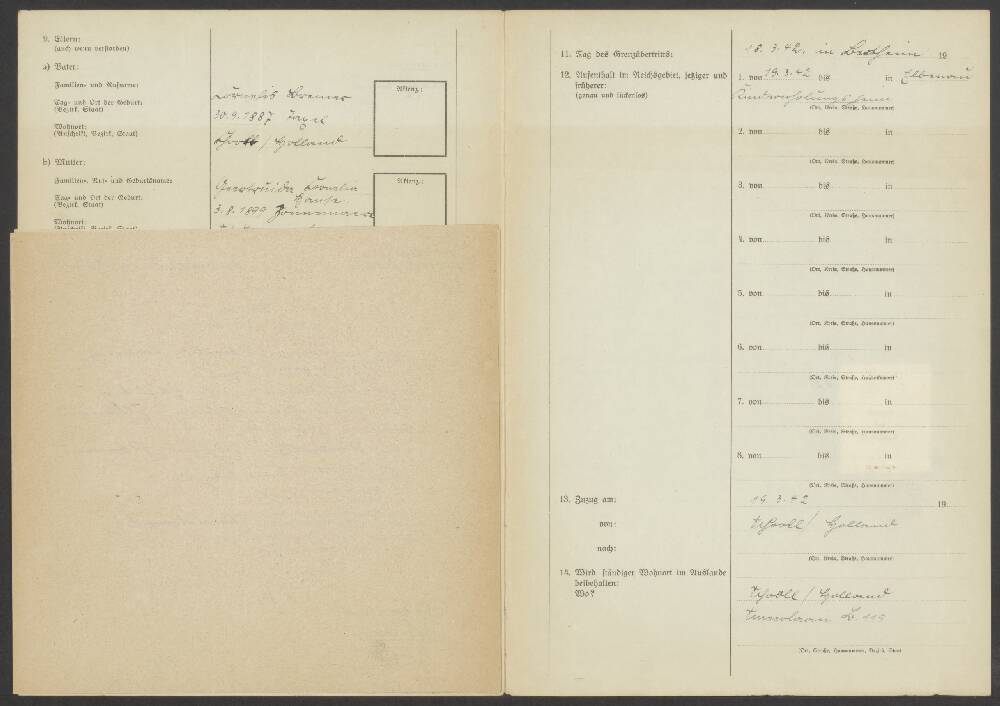 9. Eltern:
(auch wenn verstorben)
a) Vater:
Familien- und Rufname:
Cornelis Bremer
Aktenz.:
Tag- und Ort der Geburt:
(Bezirk, Staat)
30.9.1887
Wohnort:
(Anschrift, Bezirk, Staat)
/ Holland
b) Mutter:
Familien-, Ruf- und Geburtsname:
Geertruida
Aktenz.:
Tag- und Ort der Geburt:
(Bezirk, Staat)
3.8.1899 Zonnemaire
Wohnort:
11. Tag des Grenzübertritts:
18.3.42. in Bentheim 19
12. Aufenthalt im Reichsgebiet, jetziger und
früherer:
(genau und lückenlos)
1. von 19.3.42 bis in Elbenau
Kindererholungsheim
(Ort, Kreis, Straße, Hausnummer)
2. von bis in
(Ort, Kreis, Straße, Hausnummer)
3. von bis in
(Ort, Kreis, Straße, Hausnummer)
4. von bis in
(Ort, Kreis, Straße, Hausnummer)
5. von bis in
(Ort, Kreis, Straße, Hausnummer)
6. von bis in
(Ort, Kreis, Straße, Hausnummer)
7. von bis in
(Ort, Kreis, Straße, Hausnummer)
8. von bis in
(Ort, Kreis, Straße, Hausnummer)
13. Zuzug am:
19.3.42 19
von:
Schooll / Holland
nach:
(Ort, Kreis, Straße, Hausnummer)
14. Wird ständiger Wohnort im Auslande
beibehalten:
Wo?
Schooll / Holland
B. 119
(Ort, Straße, Hausnummer, Bezirk, Staat)